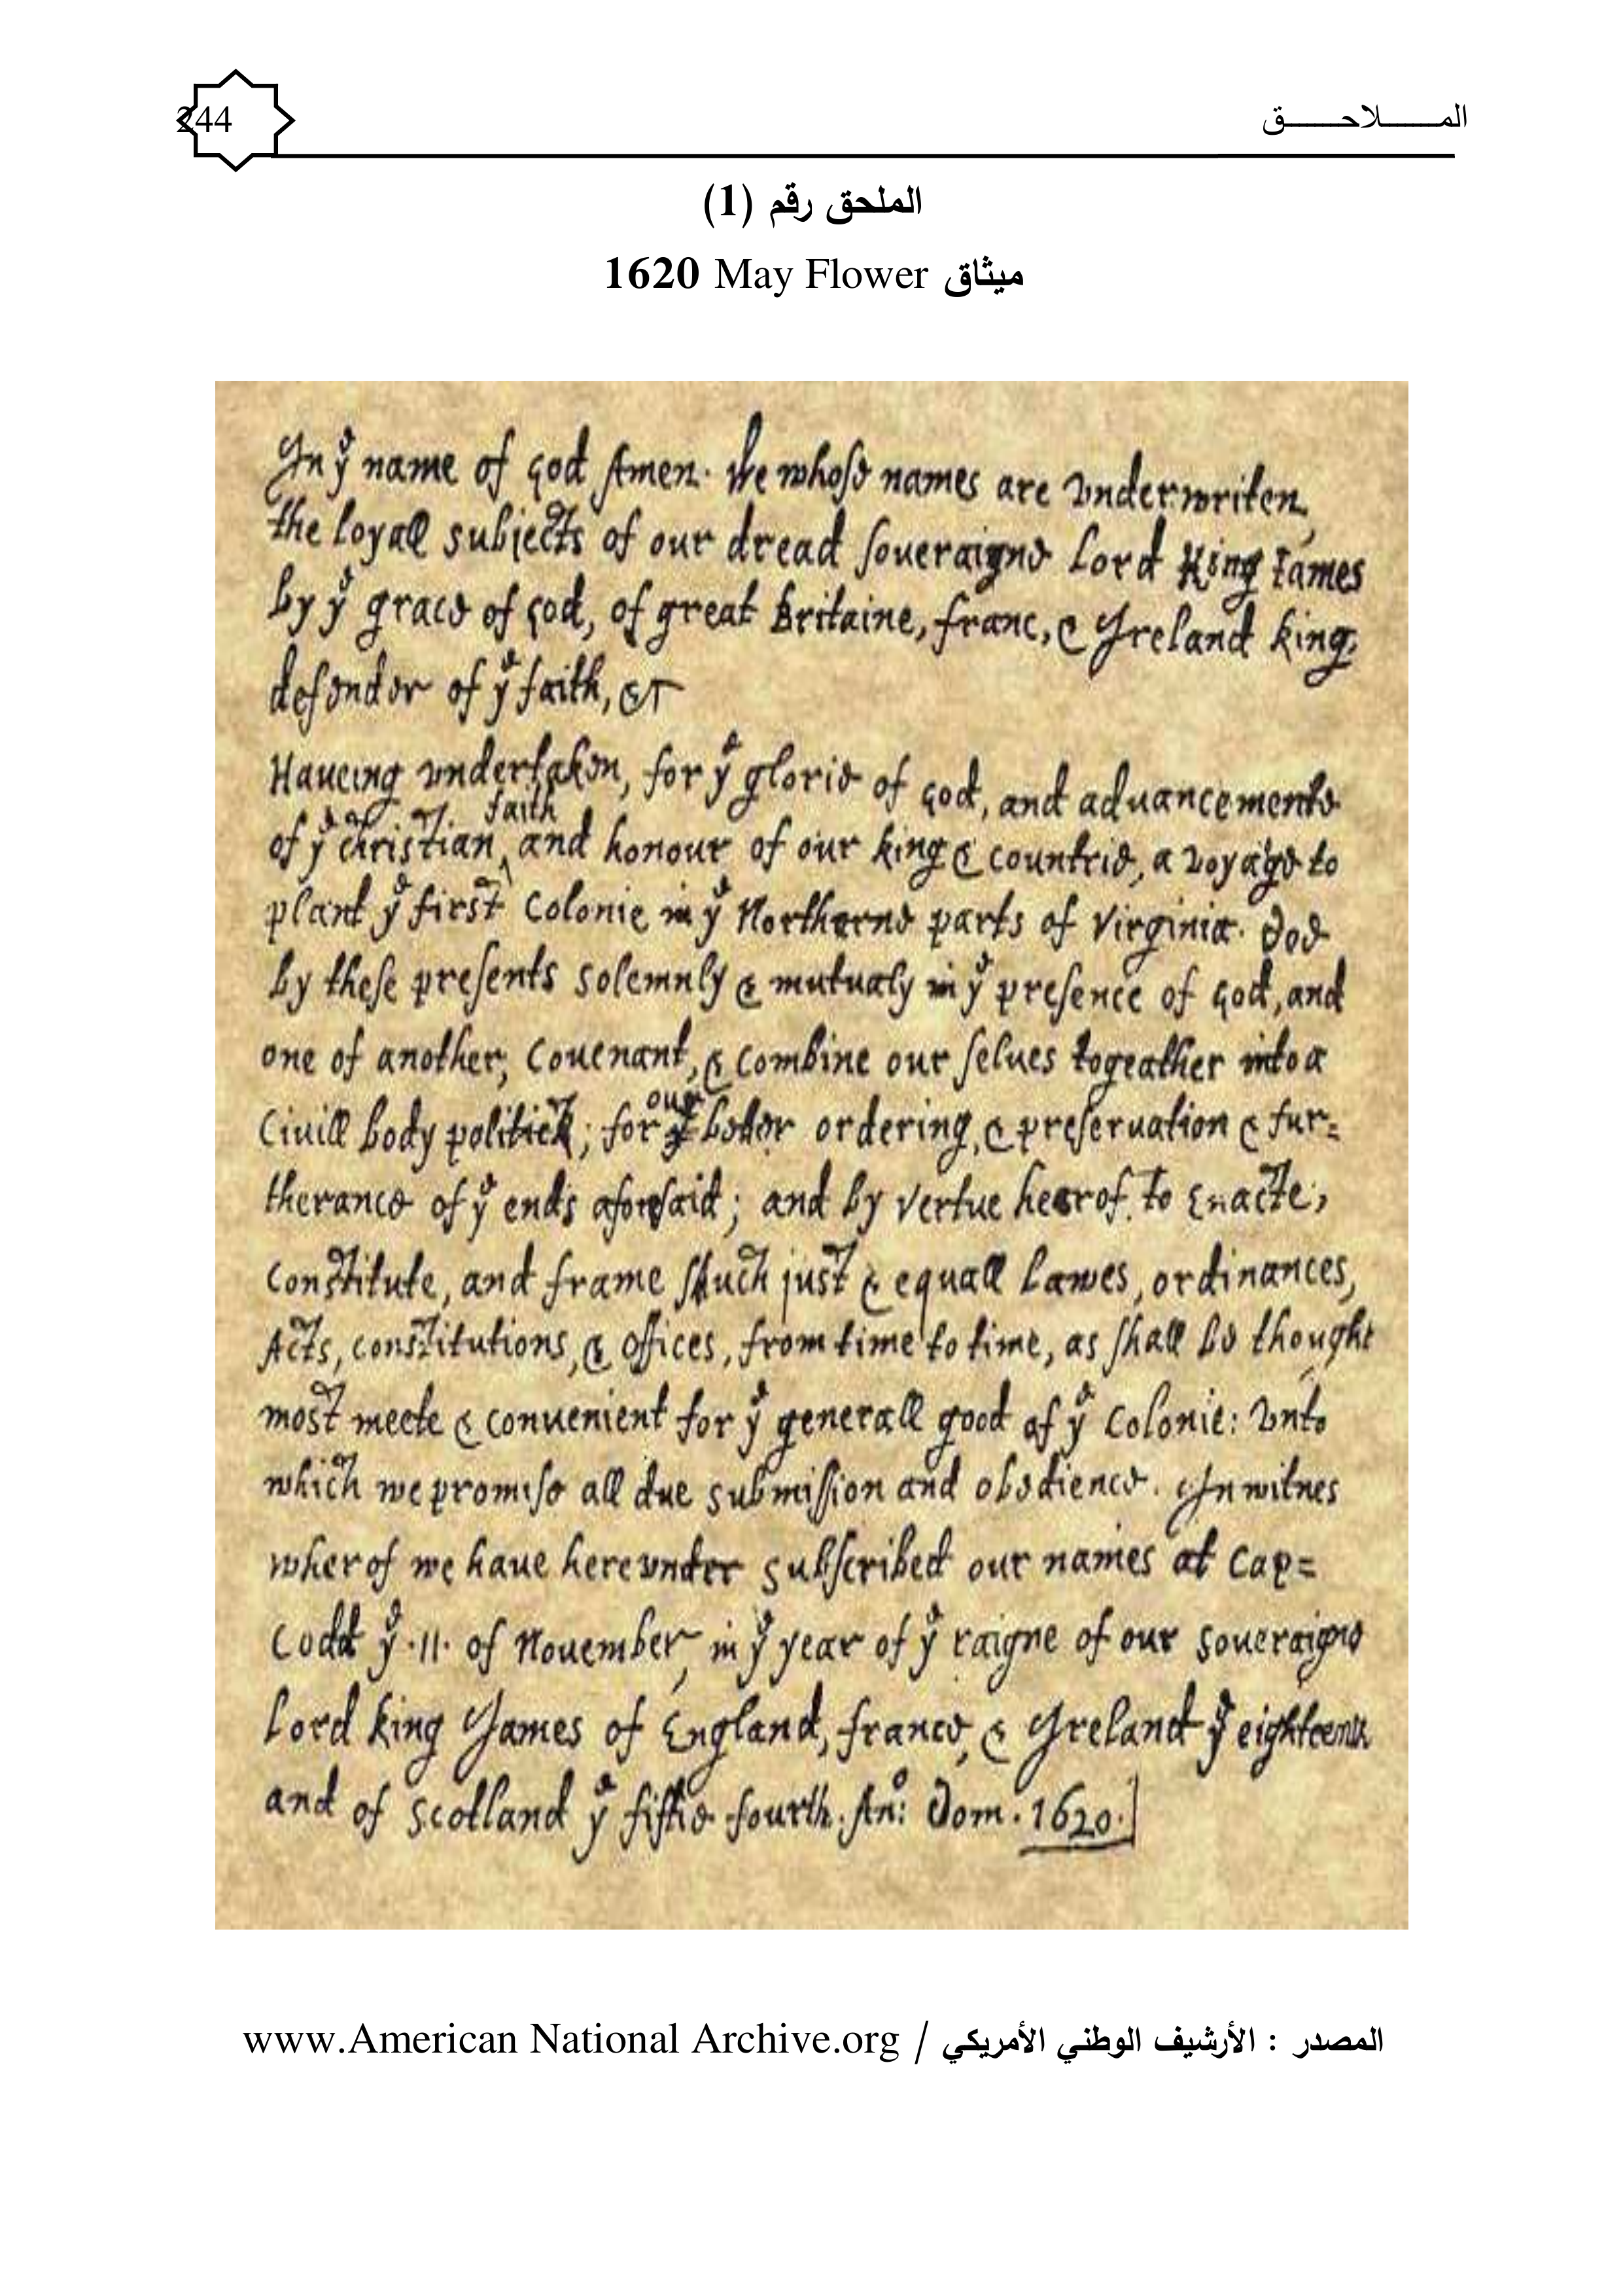 244
المـــــــلاحـــــــق
الملحق رقم (1)
ميثاق May Flower 1620
In yᵉ name of god Amen. We whose names are vnderwriten,
the loyall subjects of our dread soueraigne Lord King Iames
by yᵉ grace of god, of great Britaine, franc, & Ireland king,
defender of yᵉ faith, &c
Haueing vndertaken, for yᵉ glorie of god, and aduancemente
of yᵉ christian faith and honour of our king & countrie, a voyage to
plant yᵉ first Colonie in yᵉ Northerne parts of Virginia. Doe
by these presents solemnly & mutualy in yᵉ presence of god, and
one of another, Couenant, & combine our selues togeather into a
Ciuill body politick; for our beter ordering, & preseruation & fur=
therance of yᵉ ends aforesaid; and by vertue hearof, to Enacte,
Constitute, and frame shuch just & equall Lawes, ordinances,
Acts, constitutions, & offices, from time to time, as shall be thought
most meete & conuenient for yᵉ generall good of yᵉ Colonie: vnto
which we promise all due submission and obedience. In witnes
wherof we haue herevnder subscribed our names at Cap=
Codd yᵉ .11. of Nouember, in yᵉ year of yᵉ raigne of our soueraigne
Lord king James of England, france, & Ireland yᵉ eighteenth
and of scotland yᵉ fiftie fourth. Anᵒ: Dom. 1620.]
المصدر : الأرشيف الوطني الأمريكي / www.American National Archive.org